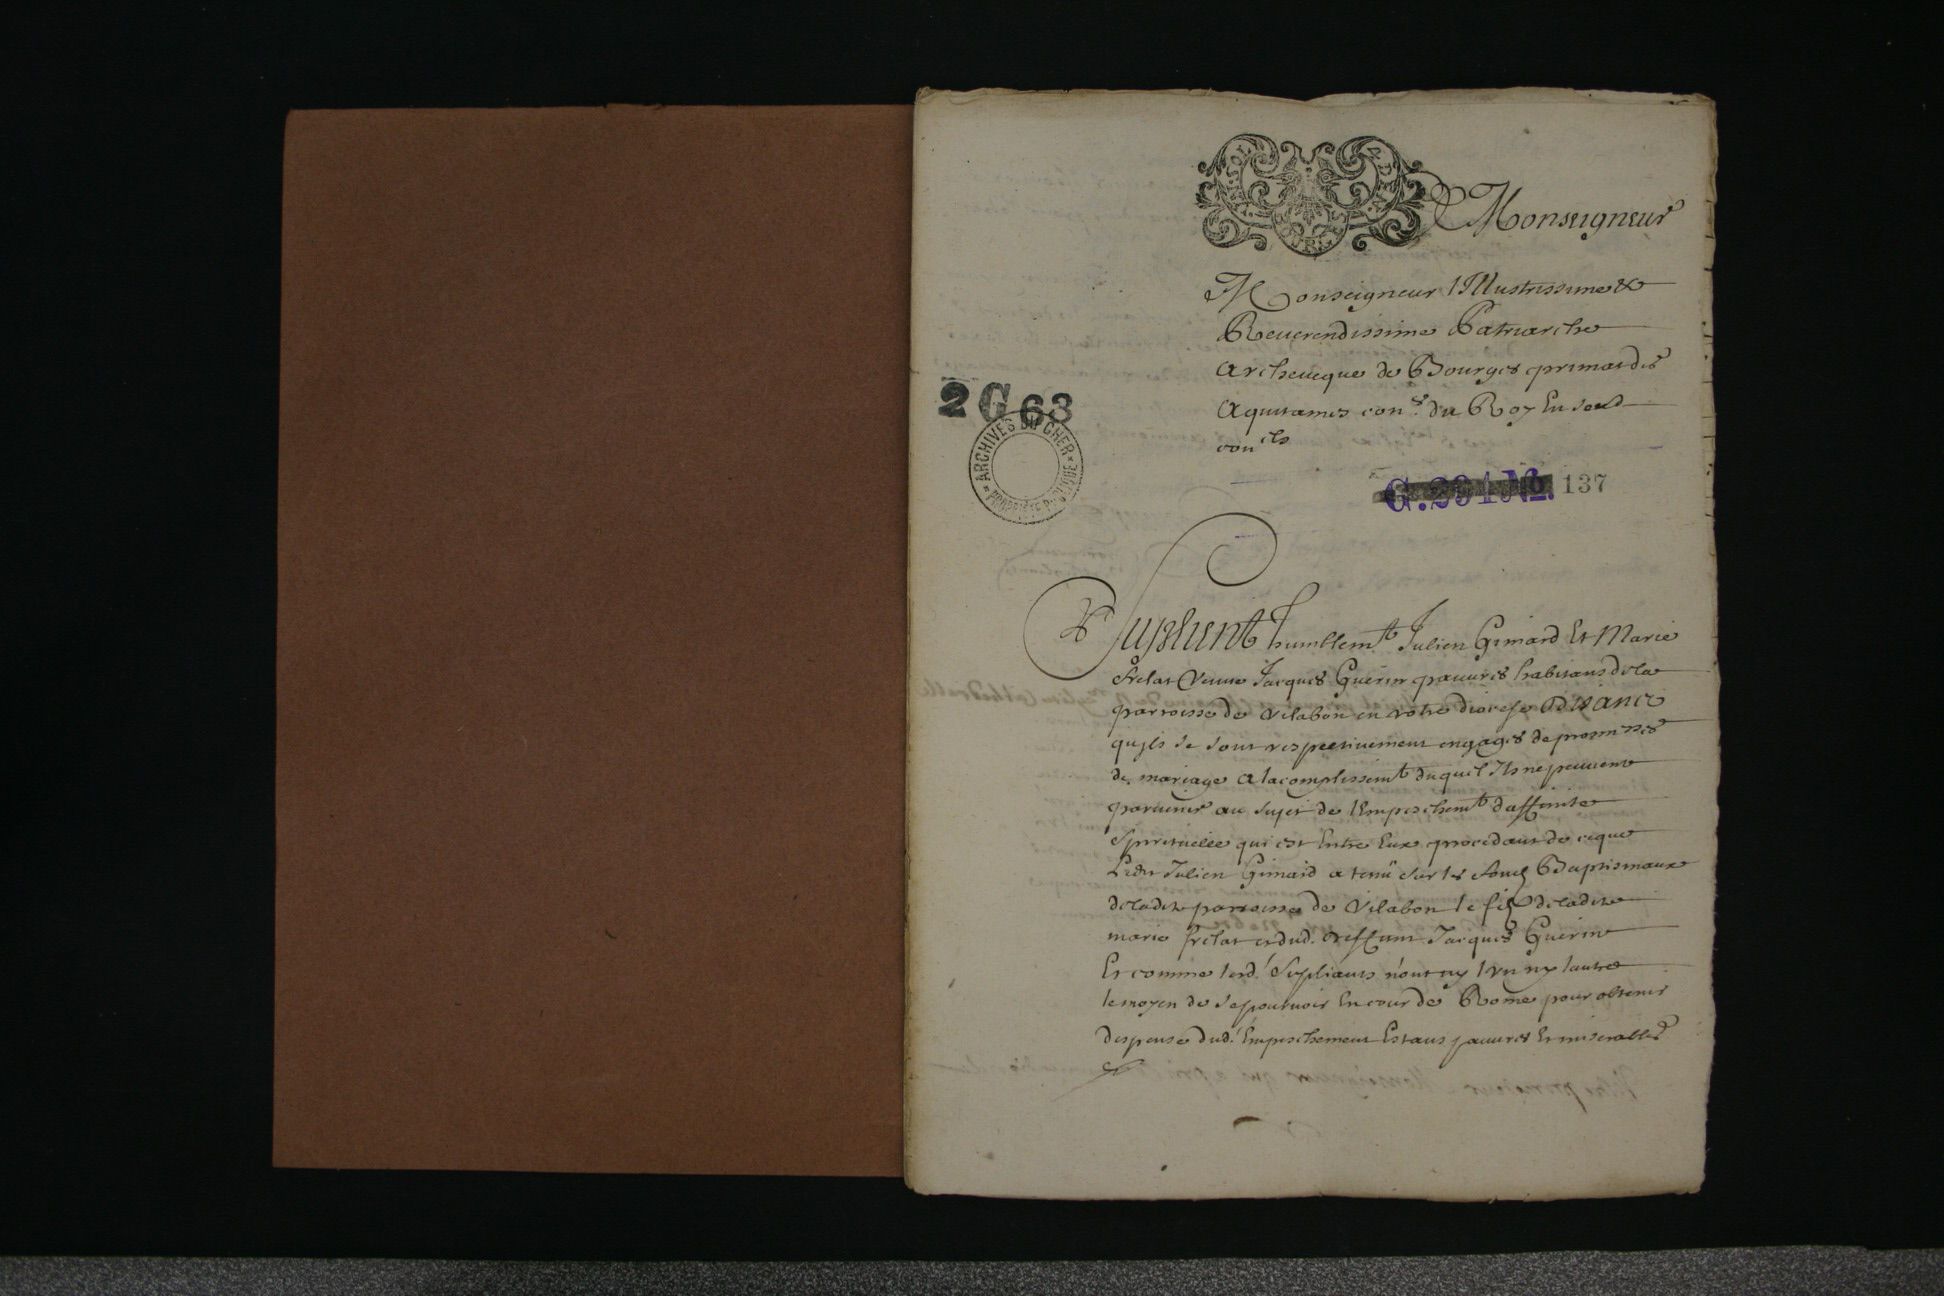 A Monseigneur
Monseigneur lIllustrissime &
Reverendissime Patriarche
Archeveque de Bourges primat des
Aquitaines con.er du Roy En ses
con.ils
2 G 63
ARCHIVES DU CHER
PROPRIÉTÉ PUBLIQUE
G. 294 No. 137
Suplient humblem.t Julien Gimard Et Marie
frelat Veuve Jacques Guerin pauvres habitans de la
parroisse de Vilabon en votre diocese Disants
quils se sont respectivement engagés de promesses
de mariage a lacomplissem.t duquel Ils ne peuvent
parvenir au sujet de lEmpeschem.t daffinité
Spirituelle qui est Entre Eux procedant de ce que
Ledit Julien Gimard a tenû sur les fonds Baptismaux
de ladite parroisse de Vilabon le fils de ladite
marie frelat et dud. deffunt Jacques Guerin
Et comme lesd. Supliants n'ont ny l'un ny lautre
le moyen de se pourvoir En cour de Rome pour obtenir
dispense dud. Empeschement Estans pauvres Et miserables